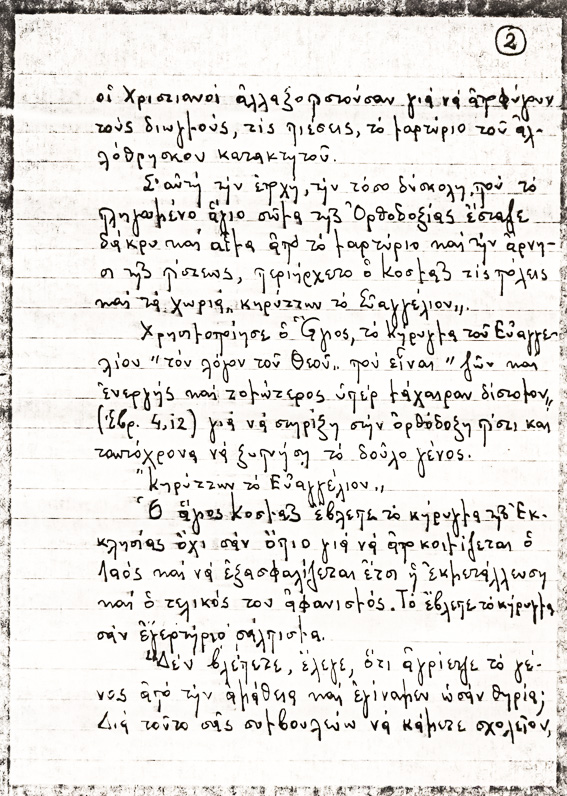 2
οἱ Χριστιανοί ἀλλαξοπιστοῦσαν γιά νά ἀποφύγουν
τούς διωγμούς, τίς πιέσεις, τό μαρτύριο τοῦ ἀλ-
λόθρησκου κατακτητοῦ.
Σ' αὐτή τήν ἐποχή, τήν τόσο δύσκολη, πού τό
πληγωμένο ἅγιο σῶμα τῆς Ὀρθοδοξίας ἔσταζε
δάκρυ καί αἷμα ἀπό τό μαρτύριο καί τήν ἄρνη-
σι τῆς πίστεως, περιήρχετο ὁ Κοσμᾶς τίς πόλεις
καί τά χωριά "κηρύττων τό Εὐαγγέλιον„.
Χρησιμοποίησε ὁ Ἅγιος, τό κήρυγμα τοῦ Εὐαγγε-
λίου "τόν λόγον τοῦ Θεοῦ„ πού εἶναι "ζῶν καί
ἐνεργής καί τομώτερος ὑπέρ μάχαιραν δίστομον„
(Ἑβρ. 4,12) γιά νά στηρίξη στήν ὀρθόδοξη πίστι καί
ταυτόχρονα νά ξυπνήση τό δοῦλο γένος.
"Κηρύττων τό Εὐαγγέλιον„
Ὁ ἅγιος Κοσμᾶς ἔβλεπε τό κήρυγμα τῆς Ἐκ-
κλησίας ὄχι σάν ὄπιο γιά νά ἀποκοιμίζεται ὁ
λαός καί νά ἐξασφαλίζεται ἔτσι ἡ ἐκμετάλλευση
καί ὁ τελικός του ἀφανισμός. Τό ἔβλεπε τό κήρυγμα
σάν ἐγερτήριο σάλπισμα.
"Δέν βλέπετε, ἔλεγε, ὅτι ἀγρίεψε τό γέ-
νος ἀπό τήν ἀμάθεια καί ἐγίναμεν ὡσάν θηρία;
Διά τοῦτο σᾶς συμβουλεύω νά κάμετε σχολεῖον,